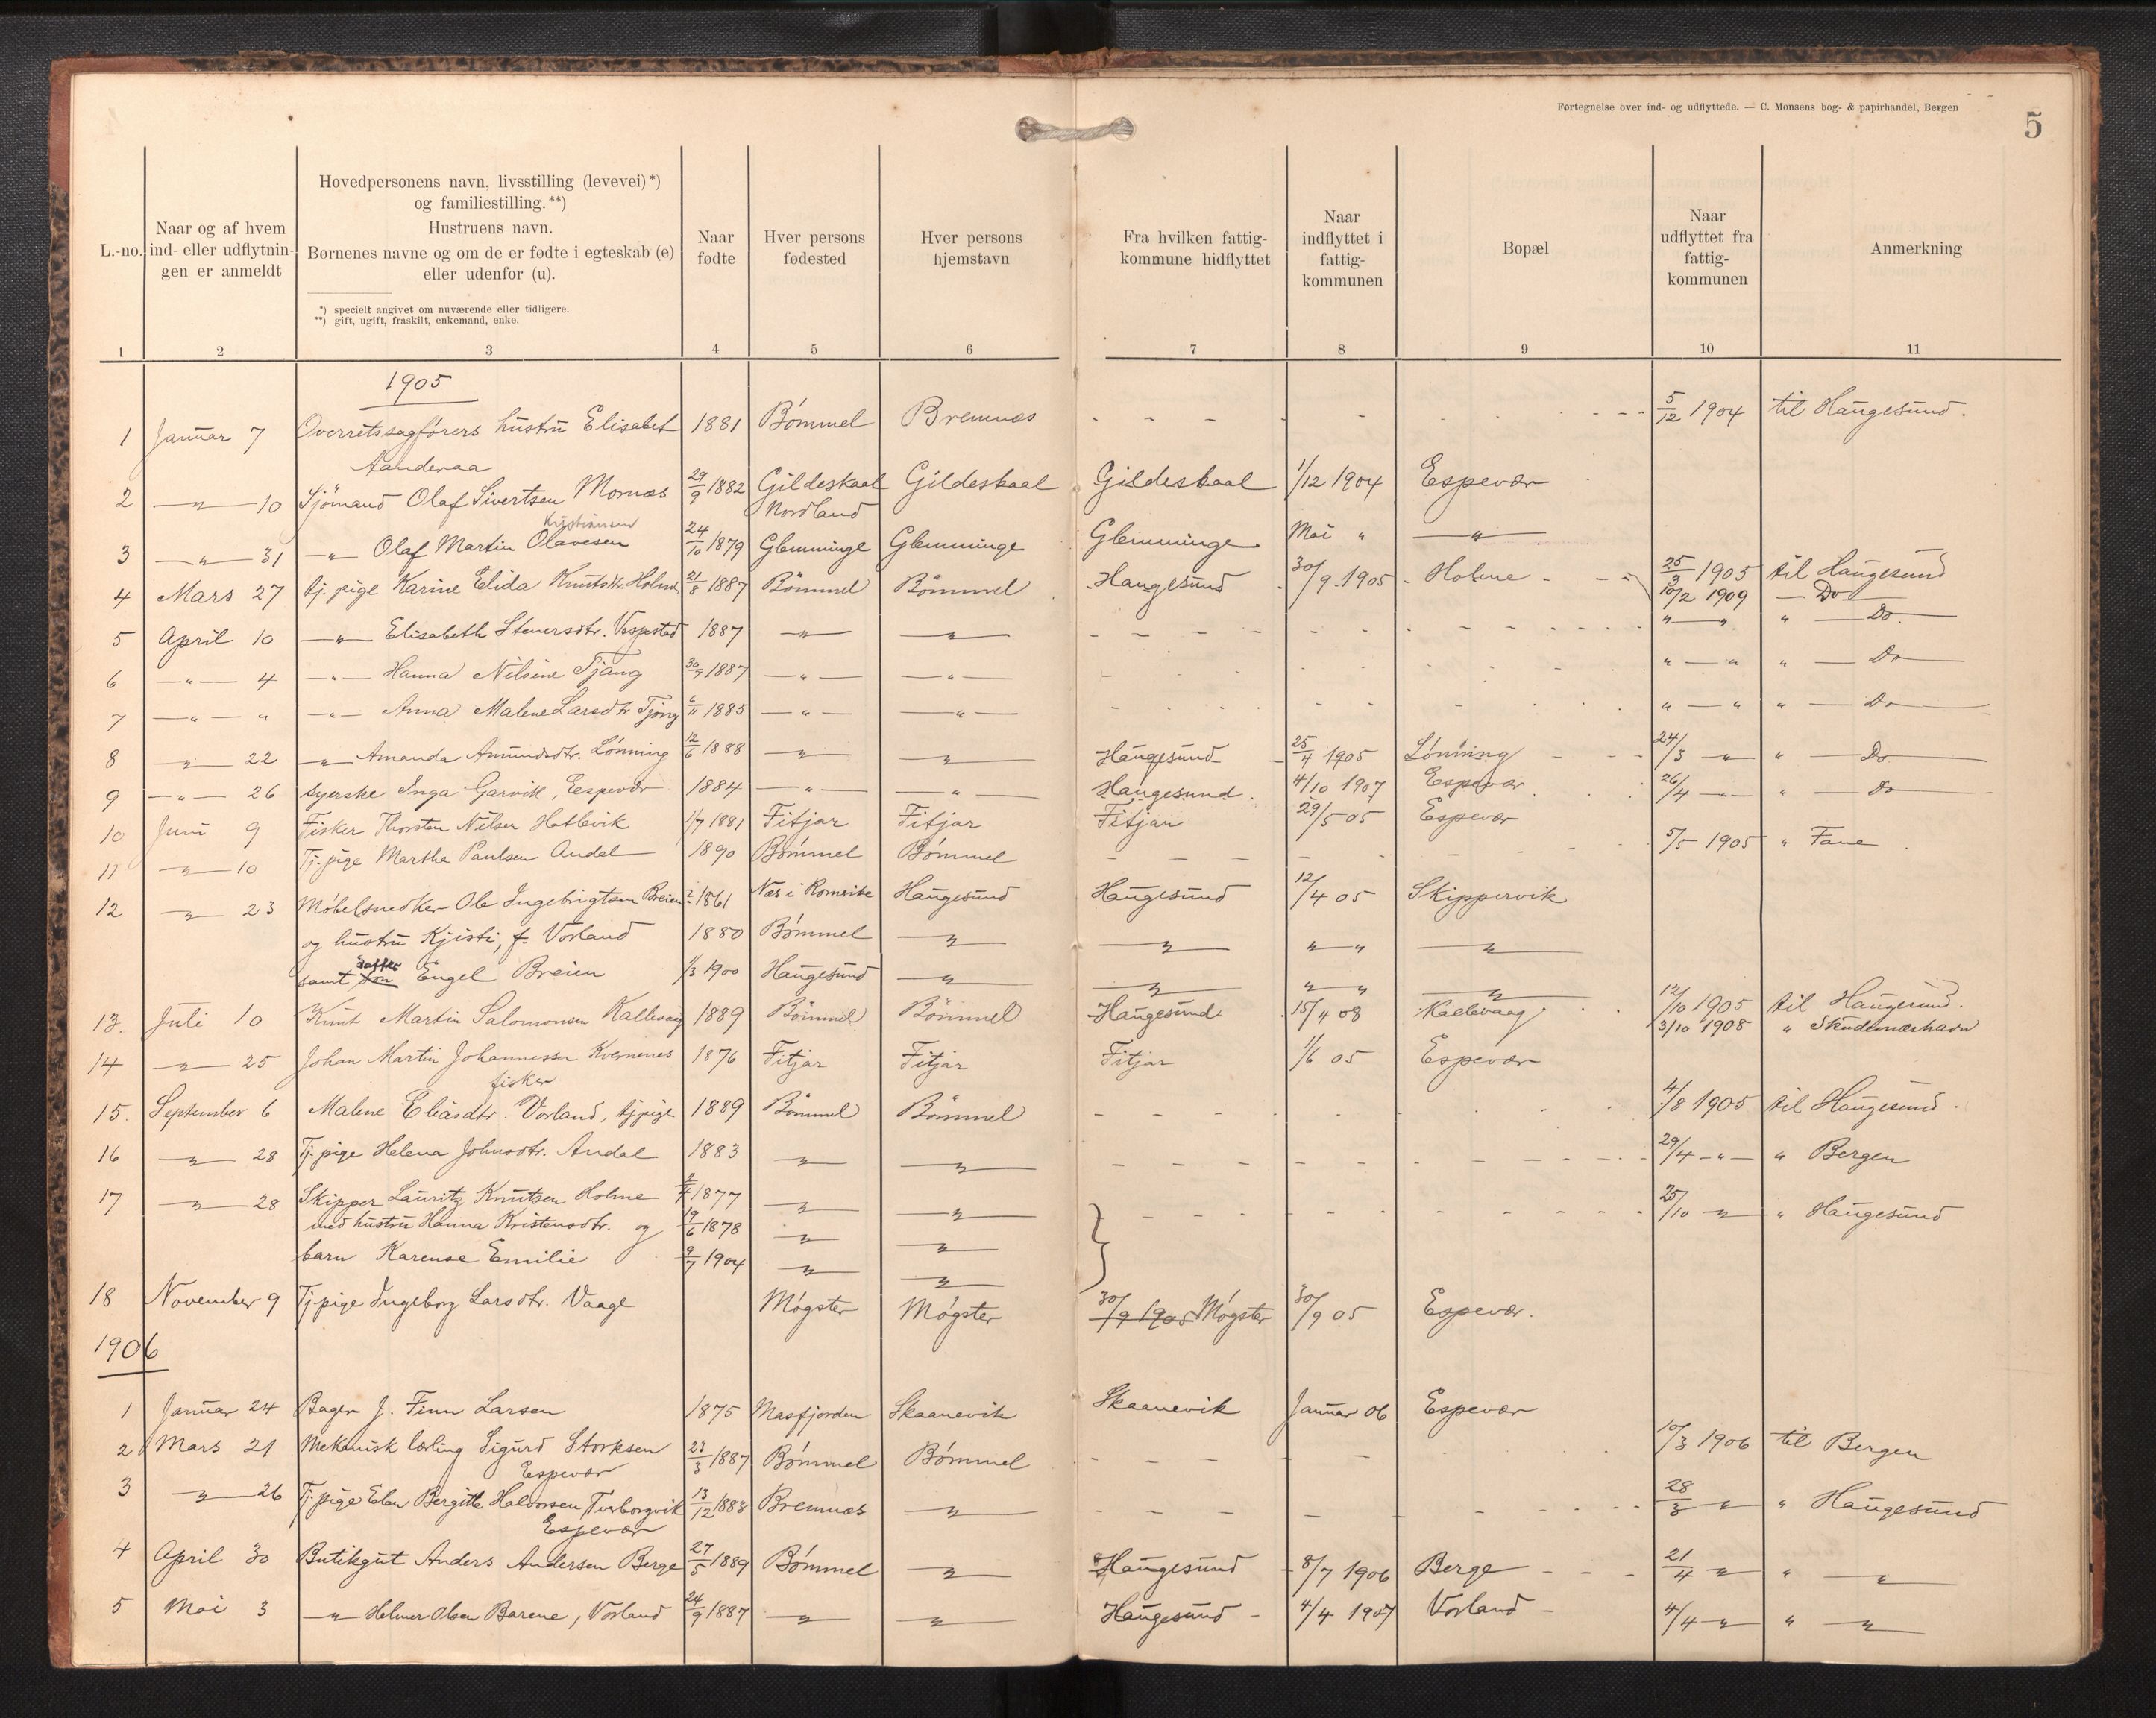 Fortegnelse over ind- og udflyttede. — C. Monsens bog- & papirhandel, Bergen
5
L.-no.
Naar og af hvem
ind- eller udflytnin-
gen er anmeldt
Hovedpersonens navn, livsstilling (levevei)*)
og familiestilling.**)
Hustruens navn.
Børnenes navne og om de er fødte i egteskab (e)
eller udenfor (u).
*) specielt angivet om nuværende eller tidligere.
**) gift, ugift, fraskilt, enkemand, enke.
Naar
fødte
Hver persons
fødested
Hver persons
hjemstavn
Fra hvilken fattig-
kommune hidflyttet
Naar
indflyttet i
fattig-
kommunen
Bopæl
Naar
udflyttet fra
fattig-
kommunen
Anmerkning
1 2 3 4 5 6 7 8 9 10 11
1905
1 Januar 7 Overretssagførers hustru Elisabet 1881 Bømmel Bremnæs - - - - - - - 5/12 1904 til Haugesund.
Aanderaa
2 — " — 10 Sjömand Olaf Sivertsen Mornæs 29/9 1882 Gildeskaal Gildeskaal Gildeskaal 1/12 1904 Espevær
Nordland
Kristiansund
3 — " — 31 — " Olaf Martin Olavesen 24/10 1879 Glemminge Glemminge Glemminge Mai " — " —
4 Mars 27 tj. pige Karine Elida Knutsdtr. Holme 21/8 1887 Bömmel Bömmel Haugesund 30/9 1905 Holme - - 25/3 1905 til Haugesund
10/2 1909 — Do
5 April 10 — " — Elisabeth Stenersdtr. Vespestad 1887 — " — — " — - - - - - - - " — " " — Do.
6 — " — 4 — " — Hanna Nilsine Tjang 30/9 1887 — " — — " — - - - - " — " " — Do
7 — " — " — " — Anna Malene Larsdtr Tjong 6/11 1885 — " — — " — - - - - " — " " — Do
8 — " — 22 — " Amanda Amundsdtr. Lønning 12/6 1888 — " — — " — Haugesund 25/4 1905 Lønning - - 24/3 — " — " — Do
9 — " — 26 syerske Inga Garvik, Espevær 1884 — " — — " — Haugesund. 4/10 1907 Espevær 26/4 — " — " — Do
10 Juni 9 Fisker Thorsten Nilsen Hatlevik 1/7 1881 Fitjar Fitjar Fitjar 29/5 05 Espevær
11 — " — 10 Tj. pige Martha Paulsen Andal 1890 Bømmel Bømmel - - - - - - 5/5 1905 " Fane
12 — " — 23 Møbelsnedker Ole Ingebrigtsen Breien 1861 Næs i Romerike Haugesund Haugesund 12/4 05 Skippervik
og hustru Kjisti, f. Vorland 1880 Bømmel — " — — " — " " — " —
datter
samt Engel Breien 1/3 1900 Haugesund — " — — " — " " — " —
13. Juli 10 Knut Martin Salomonsen Kallevaag 1889 Bömmel Bömmel Haugesund 15/4 08 Kallevaag 12/10 1905 til Haugesund.
3/10 1908 " Skudesnæshavn
14 — " — 25 Johan Martin Johannessen Kvernenes 1876 Fitjar Fitjar Fitjar 1/6 05 Espevær
fisker
15. September 6 Malene Eliasdtr. Vorland, tjpige 1889 Bömmel Bömmel - - - - - 4/8 1905 til Haugesund.
16 — " — 28 Tj. pige Helena Johnsdtr. Andal 1883 — " — — " — - - - - - - 29/4 - " - " Bergen
17 — " — 28 Skipper Lauritz Knutsen Holme 2/4 1877 — " — — " — - - - - - - 25/10 — " — " Haugesund
med hustru Hanna Kristensdtr. og 19/6 1878 — " — — " —
barn Karense Emilie 9/7 1904 — " — — " —
18 November 9 Tjpige Ingeborg Larsdtr. Vaage Møgster Møgster 30/9 1905 Møgster 30/9 05 Espevær.
1906
1 Januar 24 Bager J. Finn Larsen 1875 Masfjorden Skaanevik Skaanevik Januar 06 Espevær
2 Mars 21 Mekanisk lærling Sigurd Storksen 23/3 1887 Bømmel Bømmel - - - - 10/3 1906 til Bergen
Espevær
3 — " — 26 Tj. pige Elen Bergitte Halvorsen, Tverborgvik 13/12 1883 Bremnæs — " — - - - - - - 28/3 — " — " Haugesund
Espevær
4 April 30 Butikgut Anders Andersen Berge 27/5 1889 Bømmel — " — Haugesund 8/7 1906 Berge - - - 21/4 — " — " — " —
5 Mai 3 — " Helmer Olsen Barene, Vorland 24/9 1887 — " — — " — Haugesund - 4/4 1907 Vorland - 4/4 — " — " — " —